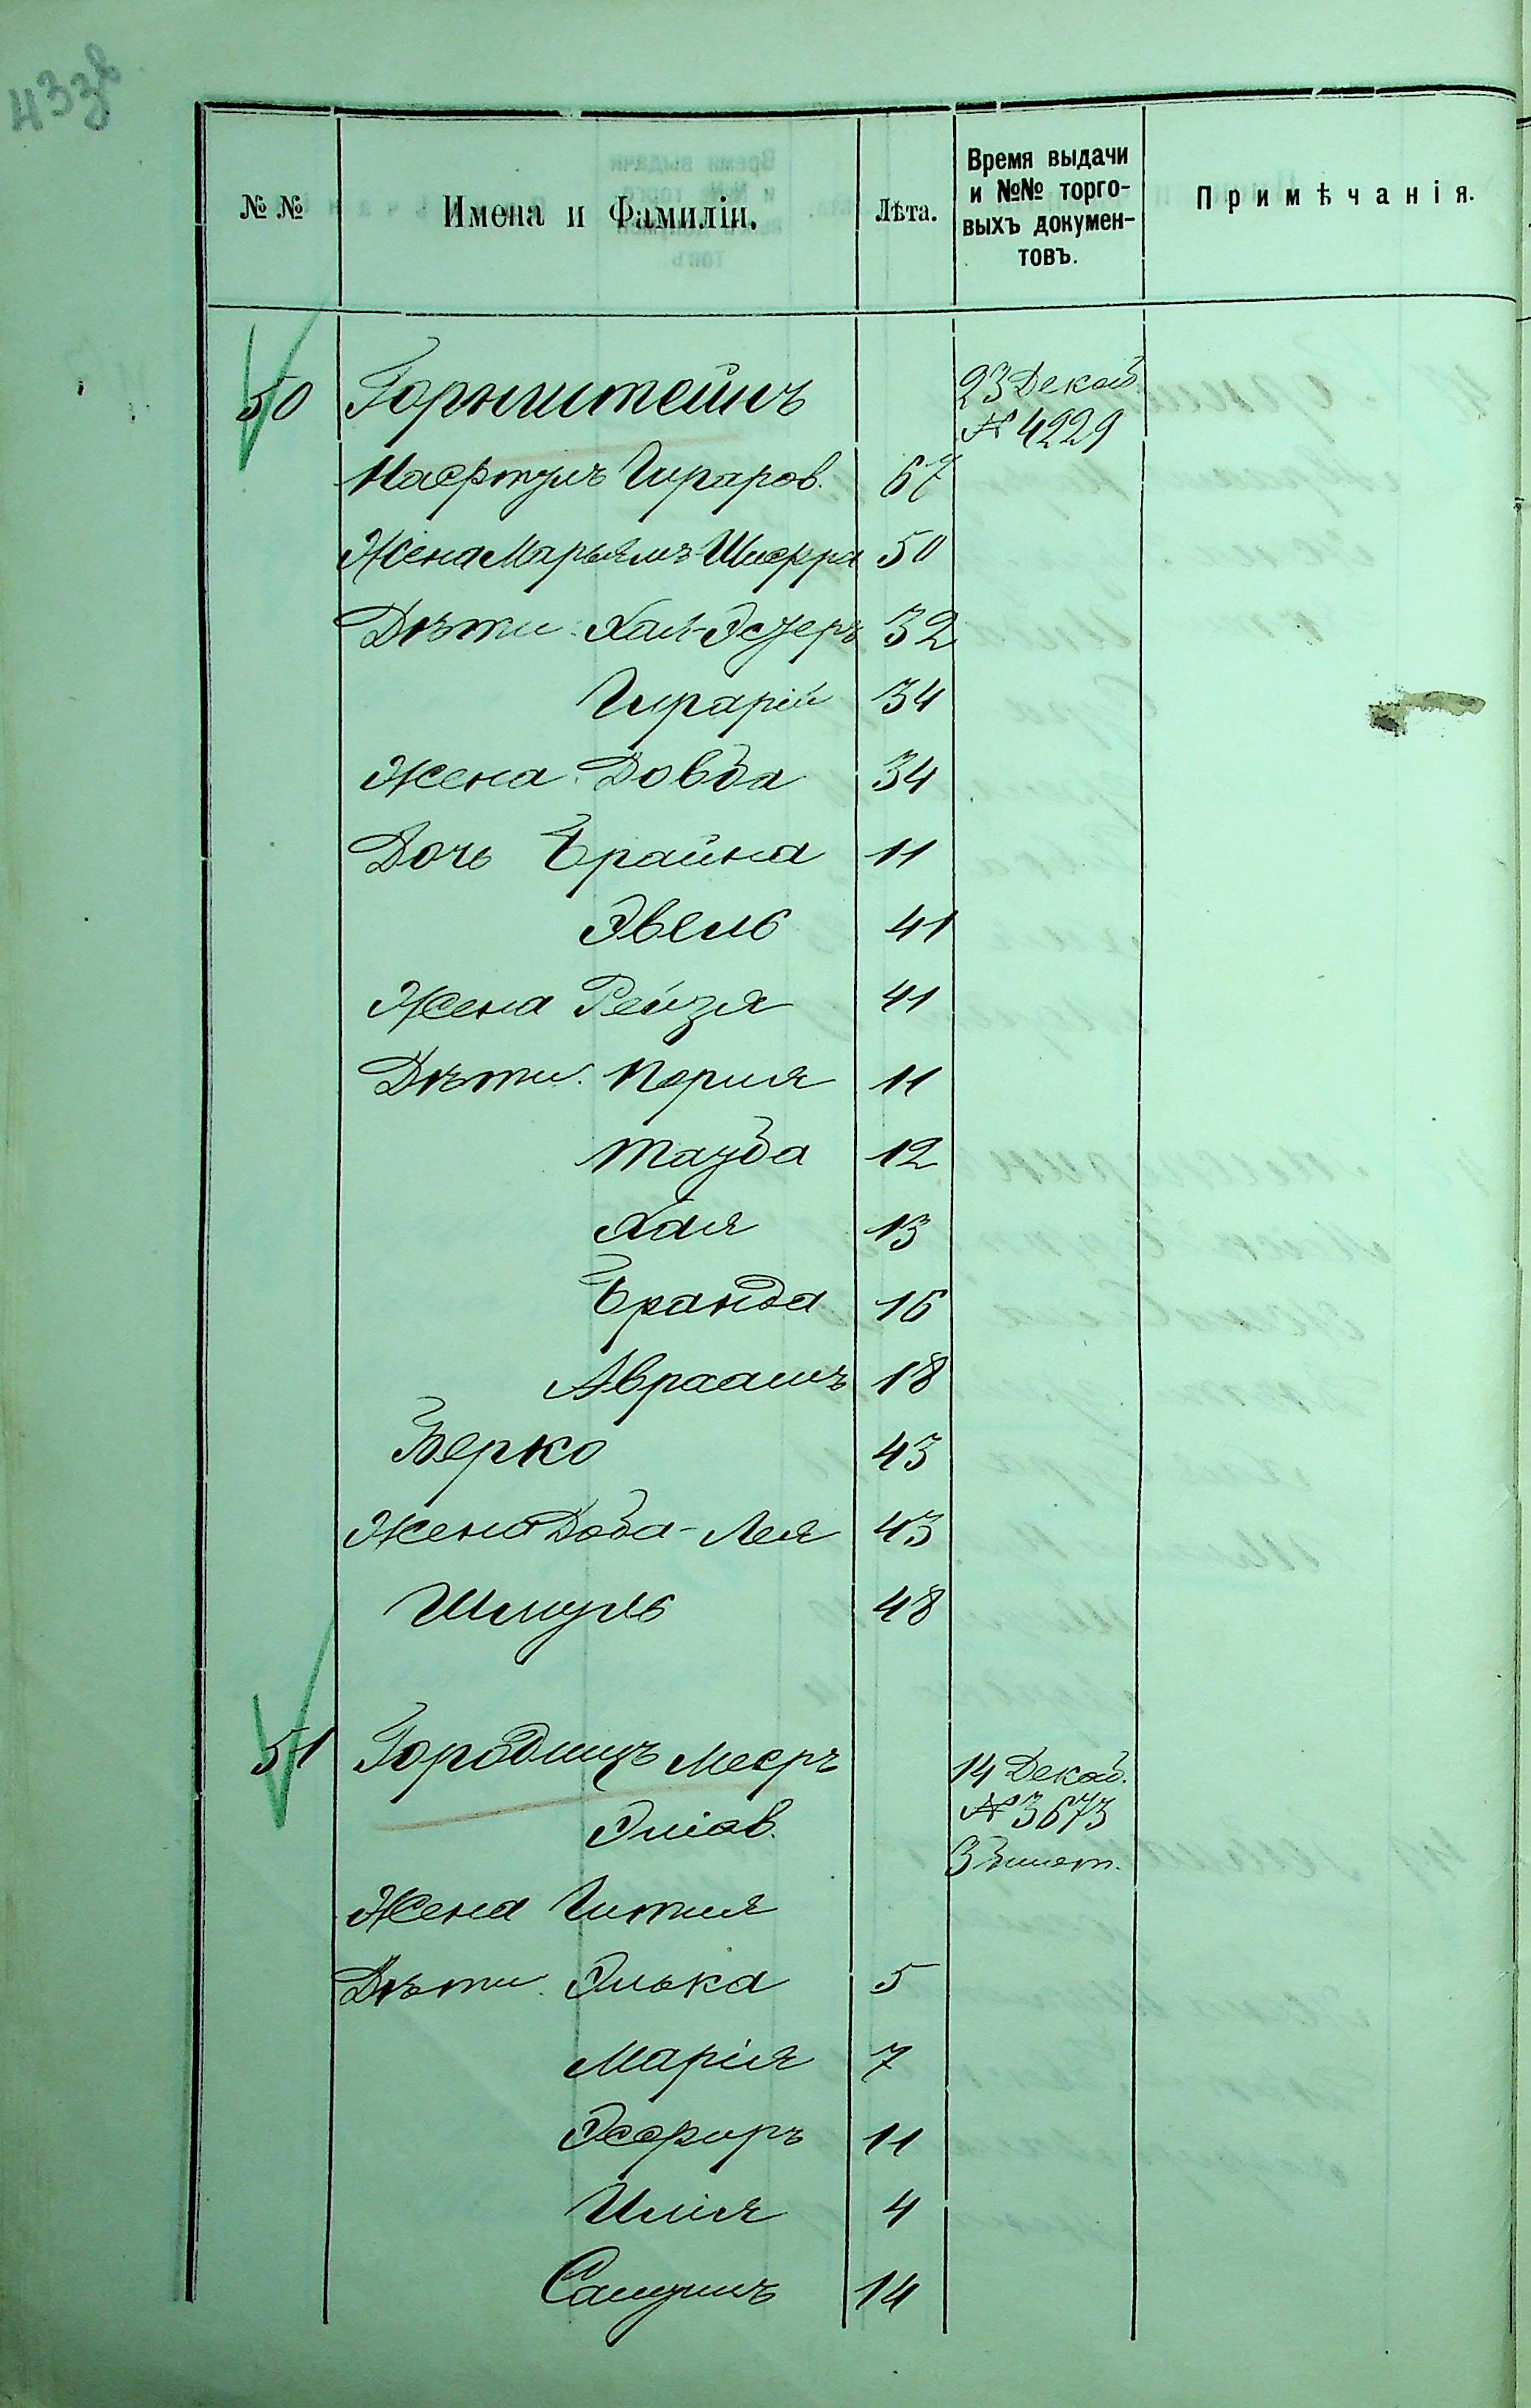 43 зв
№ №
Имена и Фамиліи.
Лѣта.
Время выдачи
и №№ торго-
выхъ докумен-
товъ.
Примѣчанія.
50 Горнштейнъ 23 Декаб.
№ 4229
Насртулъ Гираров. 67
Жена Марьямъ-Шифра 50
Дѣти: Хая-Эстеръ 32
34
Жена Довба 34
Дочь Брайна 11
Эвель 41
Жена Рейзя 41
Дѣти: Перля 11
Тауба 12
Хая 13
Бранда 16
Авраамъ 18
Берко 43
Жена Доба-Лея 43
Шмуль 48
51 Городищъ Мееръ 14 Декаб.
Эліов. № 3673
3 билет.
Жена Гитля
Дѣти. Элька 5
Марія 7
Эсфирь 11
Илія 4
Самуилъ 14